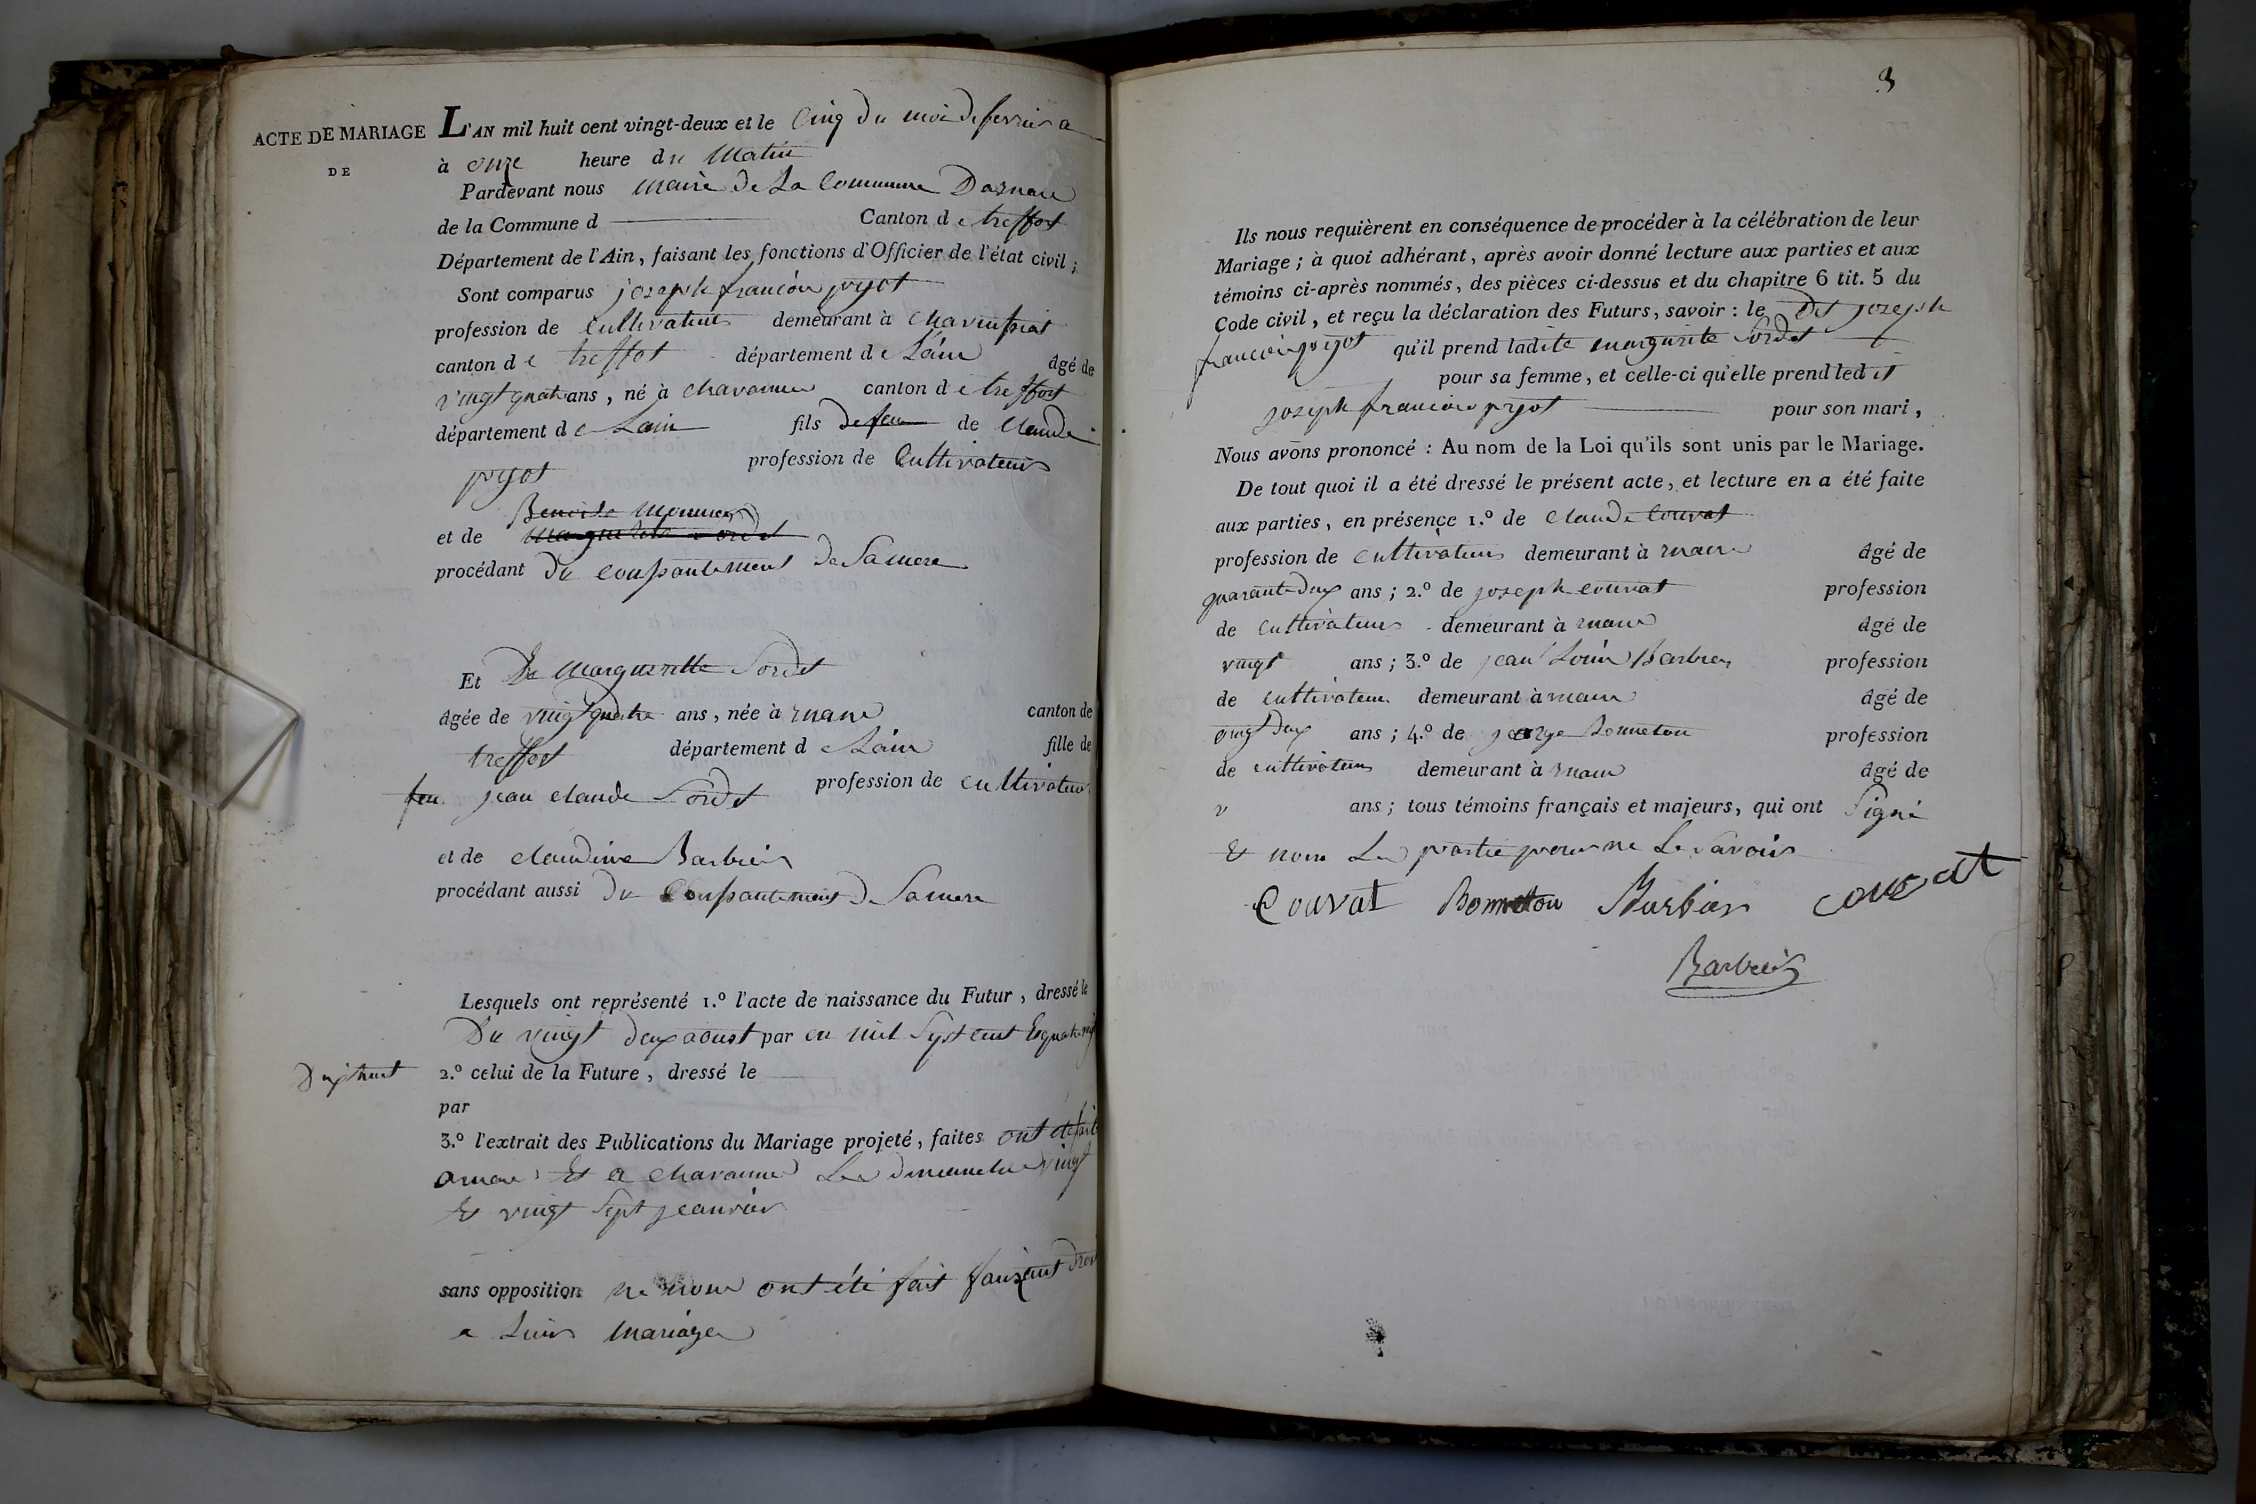 ACTE DE MARIAGE
DE
L'AN mil huit cent vingt-deux et le Cinq du moi de fevrier a
à onze heure du Matin
Pardevant nous maire de La Commune Darnan
de la Commune d Canton de treffort
Département de l'Ain, faisant les fonctions d'Officier de l'état civil;
Sont comparus joseph francois pyot
profession de Cultivateur demeurant à
canton de treffot département de Lain âgé de
vingt quatre ans, né à chavanne canton de treffort
département de Lain fils de feu de Claude
pyot profession de Cultivateur
Benoite Monnier
et de
procédant du consantement De Samere
Et De Margueritte Sordet
âgée de vingt quatre ans, née à canton de
treffort département de Lain fille de
feu jean claude Sordet profession de cultivateur
et de claudine Barbier
procédant aussi du Consantement De Samere
Lesquels ont représenté 1.º l'acte de naissance du Futur, dressé le
Du vingt deux aoust par en mil Sept cent
Dixhuit
2.º celui de la Future, dressé le
par
3.º l'extrait des Publications du Mariage projeté, faites ont
Et a chavanne Les dimanche vingt
Et vingt Sept jeanvier
sans opposition ne nous ont été fait
a Leur mariage
3
Ils nous requièrent en conséquence de procéder à la célébration de leur
Mariage; à quoi adhérant, après avoir donné lecture aux parties et aux
témoins ci-après nommés, des pièces ci-dessus et du chapitre 6 tit. 5 du
Code civil, et reçu la déclaration des Futurs, savoir: le dit joseph
francois pyot qu'il prend ladite margurite Sordet
pour sa femme, et celle-ci qu'elle prend ledit
joseph francois pyot pour son mari,
Nous avons prononcé: Au nom de la Loi qu'ils sont unis par le Mariage.
De tout quoi il a été dressé le présent acte, et lecture en a été faite
aux parties, en présence 1.º de Claude Couvat
profession de cultivateur demeurant à âgé de
quarante Deux ans; 2.º de joseph couvat profession
de cultivateur demeurant à âgé de
vingt ans; 3.º de jean Louis Barbier profession
de cultivateur demeurant à âgé de
vingt Deux ans; 4.º de Bonneton profession
de cultivateur demeurant à âgé de
v ans; tous témoins français et majeurs, qui ont Signé
Et non Les partie pour ne Le Savoir
Couvat Bonnetton Barbier couvat
Barbier